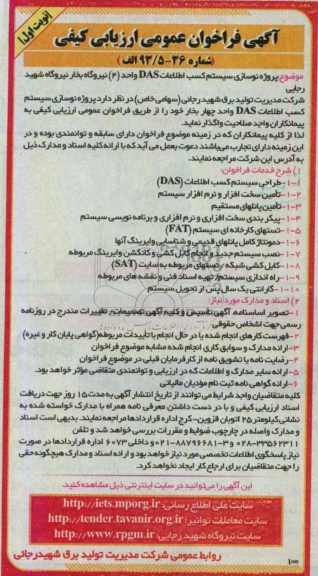 نوبت اول
آگهی فراخوان عمومی ارزیابی کیفی
(شماره ۳۶-۹۳/۵ الف)
موضوع: پروژه نوسازی سیستم کسب اطلاعات DAS واحد (۴) نیروگاه بخار نیروگاه شهید
رجایی
شرکت مدیریت تولید برق شهید رجایی (سهامی خاص) در نظر دارد پروژه نوسازی سیستم
کسب اطلاعات DAS واحد چهار بخار خود را از طریق فراخوان عمومی ارزیابی کیفی به
پیمانکاران واجد صلاحیت واگذار نماید.
لذا از کلیه پیمانکاران که در زمینه موضوع فراخوان دارای سابقه و توانمندی بوده و در
این زمینه دارای تجارب می‌باشند دعوت بعمل می‌آید که با ارائه کلیه اسناد و مدارک ذیل
به آدرس این شرکت مراجعه نمایند.
۱) شرح خدمات فراخوان:
۱-۱- طراحی سیستم کسب اطلاعات (DAS)
۱-۲- تأمین سخت افزار و نرم افزار سیستم
۱-۳- تأمین پانلهای مستقیم
۱-۴- پیکربندی سخت افزاری و نرم افزاری و برنامه نویسی سیستم
۱-۵- تستهای کارخانه ای سیستم (FAT)
۱-۶- دمونتاژ کامل پانلهای قدیمی و شناسایی وایرینگ آنها
۱-۷- نصب سیستم جدید و انجام کابل کشی و کانکشن وایرینگ مربوطه
۱-۸- کابل کشی شبکه، تستهای مربوطه به سایت (SAT)
۱-۹- راه اندازی سیستم، تهیه اسناد فنی و نقشه های مربوطه
۱-۱۰- گارانتی یک سال پس از تحویل سیستم
۲) اسناد و مدارک مورد نیاز:
۱- تصویر اساسنامه، آگهی تأسیس و کلیه آگهی تصمیمات و تغییرات مندرج در روزنامه
رسمی جهت اشخاص حقوقی
۲- فهرست کارهای انجام شده یا در حال انجام با تأییدات مربوطه (گواهی پایان کار و غیره)
۳- ارائه مدارک و سوابق کاری انجام شده مشابه موضوع فراخوان
۴- رضایت نامه یا تشویق نامه از کارفرمایان قبلی در موضوع فراخوان
۵- ارائه سایر مدارک و اطلاعات که در ارزیابی و توانمندی متقاضی مؤثر خواهد بود.
۶- ارائه گواهی نامه ثبت نام مؤدیان مالیاتی
کلیه متقاضیان واجد شرایط می توانند از تاریخ انتشار آگهی به مدت ۱۵ روز جهت دریافت
اسناد ارزیابی کیفی و با در دست داشتن معرفی نامه همراه با مدارک خواسته شده به
نشانی کیلومتر ۲۵ اتوبان قزوین-کرج اداره قراردادها مراجعه نمایند. بدیهی است اسناد
و مدارک واصله در چارچوب ضوابط و مقررات بررسی خواهد شد و تلفن
۰۲۸-۳۳۵۶۲۳۱۱ و ۳-۰۲۱-۸۸۷۹۶۶۸۱ و داخلی ۶۰۷۳ اداره قراردادها در صورت
نیاز پاسخگوی اطلاعات تخصصی مورد نیاز خواهد بود و ارائه اسناد و مدارک هیچگونه حقی
را جهت متقاضیان برای ارجاع کار ایجاد نخواهد کرد.
این آگهی را می‌توانید در سایت اینترنتی ذیل مشاهده کنید.
سایت ملی اطلاع رسانی: http://iets.mporg.ir
سایت معاملات توانیر: http://tender.tavanir.org.ir
سایت نیروگاه شهید رجایی: http://www.rpgm.ir
روابط عمومی شرکت مدیریت تولید برق شهید رجائی